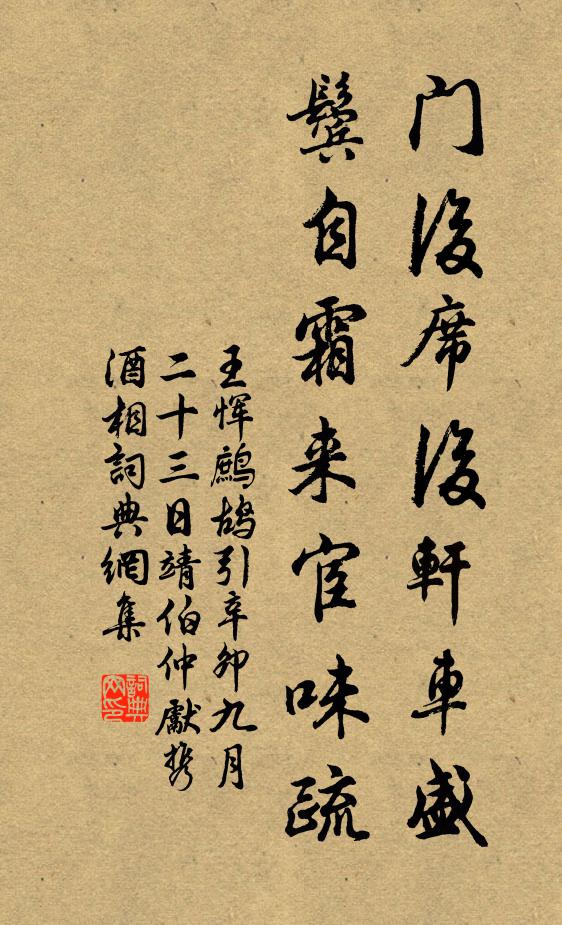 门後席後軒車盛
鬓自霜来宦味疏
王恽鷓鴣引辛卯九月
二十三日靖伯仲獻携
酒相詞典網集
詞典
网印